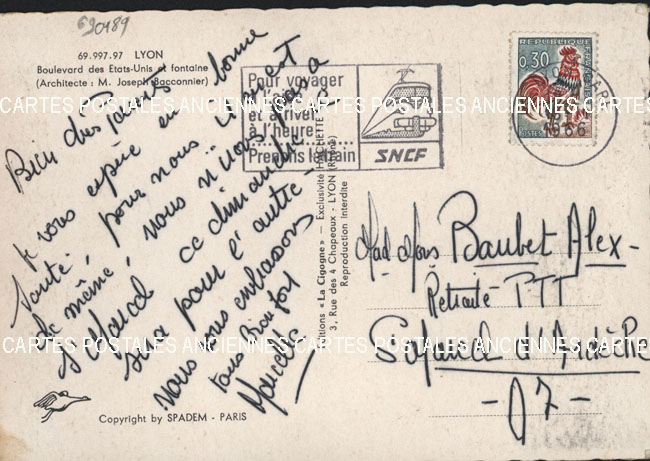 690489
69.997.97 LYON
Boulevard des Etats-Unis et fontaine
(Architecte : M. Joseph Bacconnier)
Pour voyager
et arriver
à l'heure
Prenons le train
SNCF
REPUBLIQUE
0,30
POSTES
CARTES POSTALES ANCIENNES CARTES POSTALES ANCIENNES
Bien chers
Je vous espère en bonne
santé, pour nous c'est
de même, nous
ce dimanche
pour l'autre -
nous vous embrassons
tous bien fort
Marcelle
Editions « La Cigogne » — Exclusivité HACHETTE
3, Rue des 4 Chapeaux - LYON (Rhône)
Reproduction Interdite
Mad Mons Baubet Alex -
Retraité PTT
d'Ardèche
- 07 -
CARTES POSTALES ANCIENNES CARTES POSTALES ANCIENNES
Copyright by SPADEM - PARIS